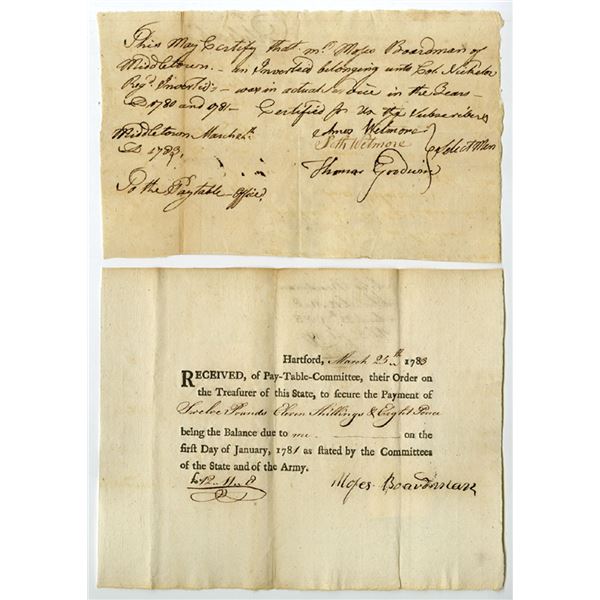 This May Certify that mr Moses Boardman of
Middletown. - an Invorled belonging unto Col. Nichols
Regt Invorleds - was in actual Service in the Years -
AD 1780 and 981 - Certified for Us the Subscribers
Middletown March 24th
AD 1783,
Amos Wetmore
Seth Wetmore
Thomas Goodwin
Select Men
To the Paytable - Office
Hartford, March 25th 1783
RECEIVED, of Pay-Table-Committee, their Order on
the Treasurer of this State, to secure the Payment of
Twelve Pounds Eleven Shillings & Eight Pence
being the Balance due to me on the
first Day of January, 1781 as stated by the Committees
of the State and of the Army.
£12..11..8
Moses Boardman